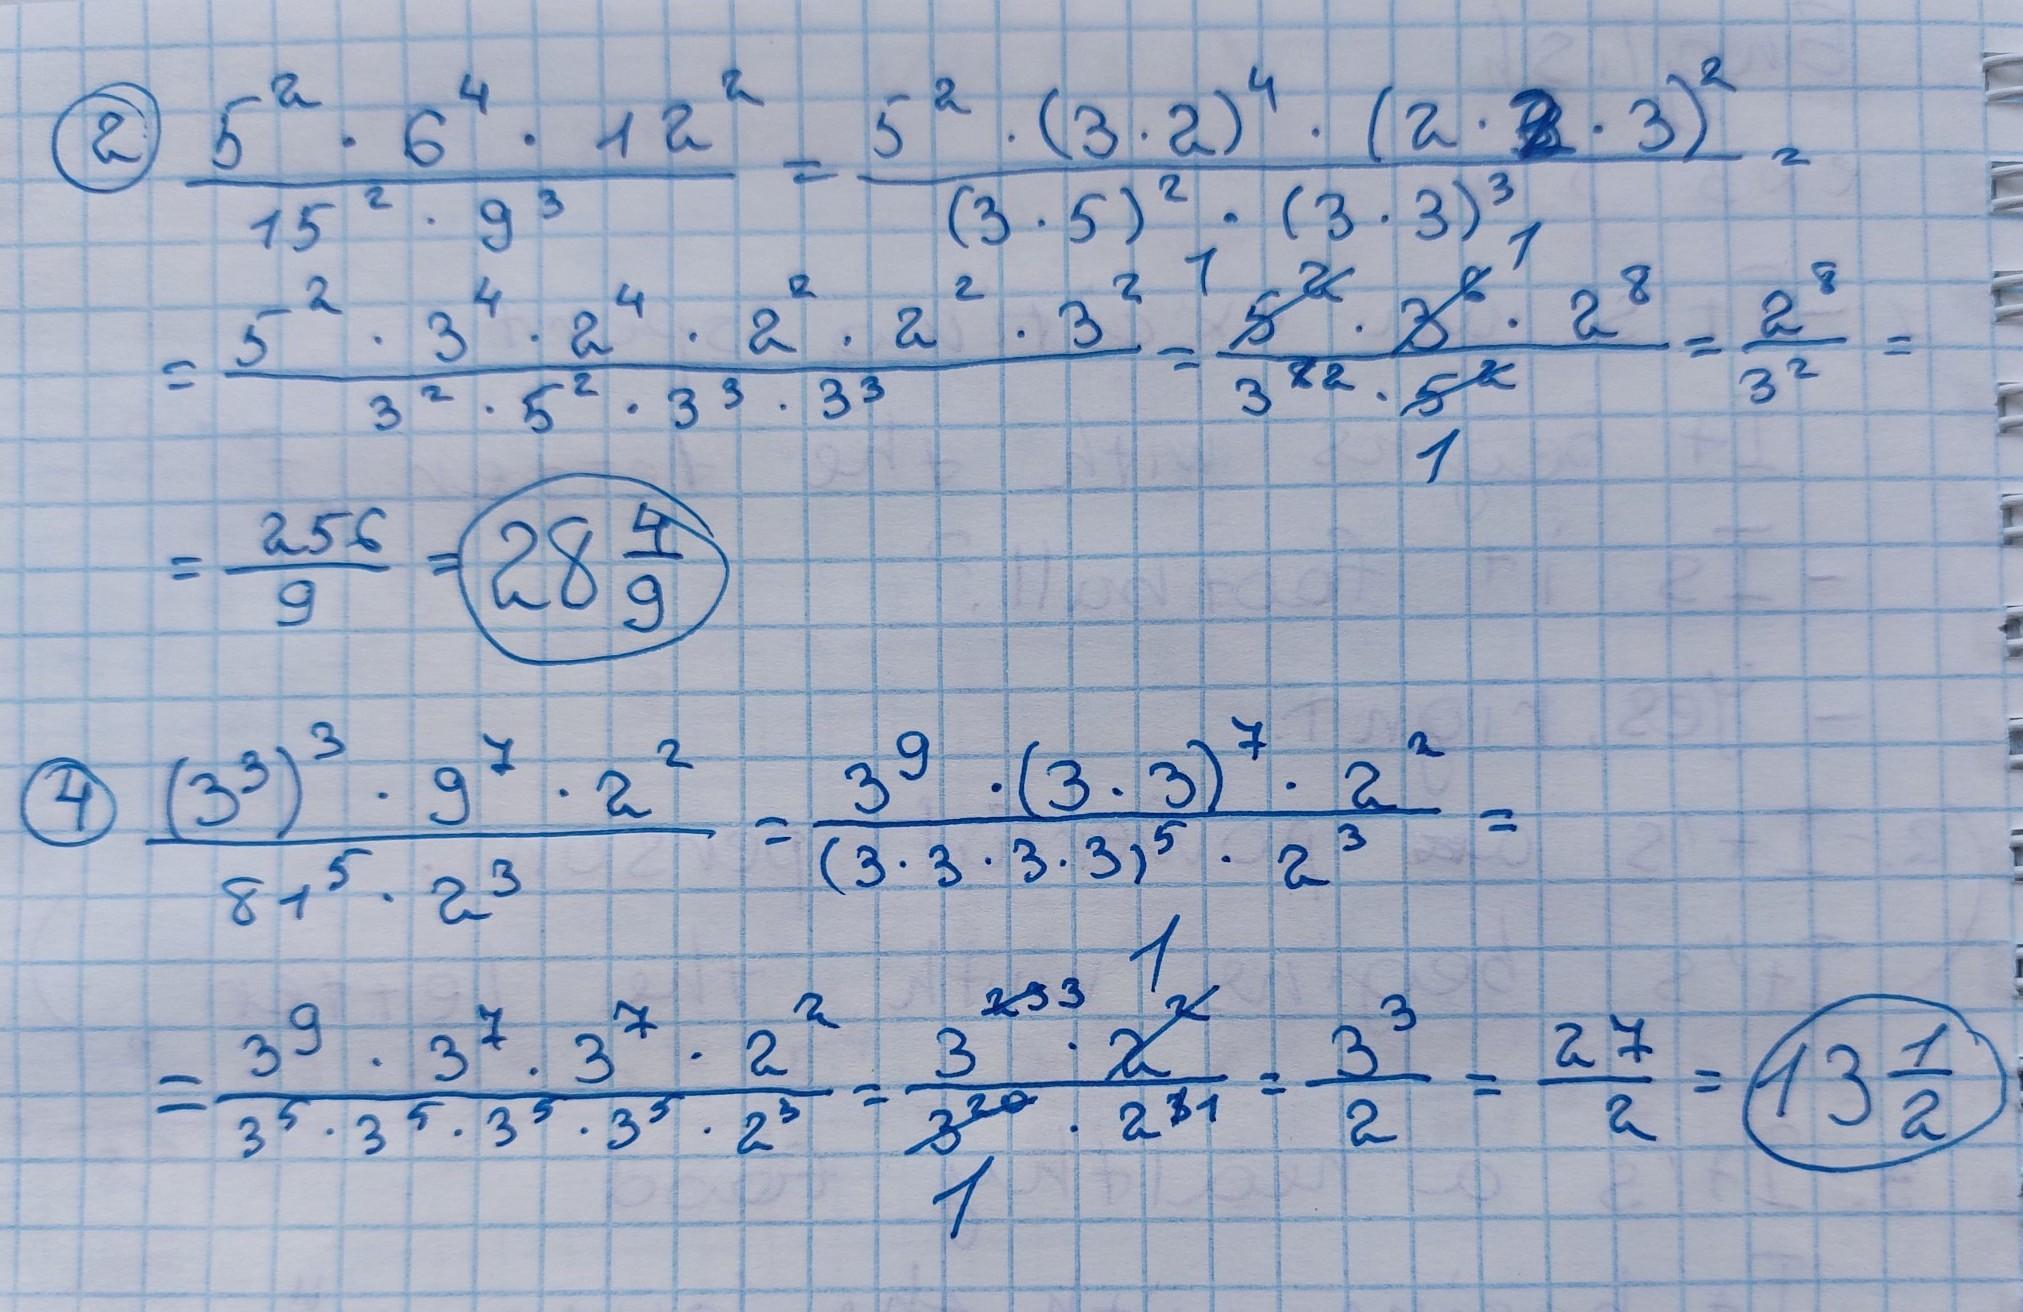 ② (5² · 6⁴ · 12²)/(15² · 9³) = (5² · (3·2)⁴ · (2·2·3)²)/((3·5)² · (3·3)³) =
= (5² · 3⁴ · 2⁴ · 2² · 2² · 3²)/(3² · 5² · 3³ · 3³) = (5² · 3⁶ · 2⁸)/(3⁸ ² · 5²) 1 1 1 = 2⁸/3² =
= 256/9 = 28 4/9
④ ((3³)³ · 9⁷ · 2²)/(81⁵ · 2³) = (3⁹ · (3·3)⁷ · 2²)/((3·3·3·3)⁵ · 2³) =
= (3⁹ · 3⁷ · 3⁷ · 2²)/(3⁵ · 3⁵ · 3⁵ · 3⁵ · 2³) = (3²³ ³ · 2²)/(3²⁰ · 2³ ¹) 1 1 = 3³/2 = 27/2 = 13 1/2